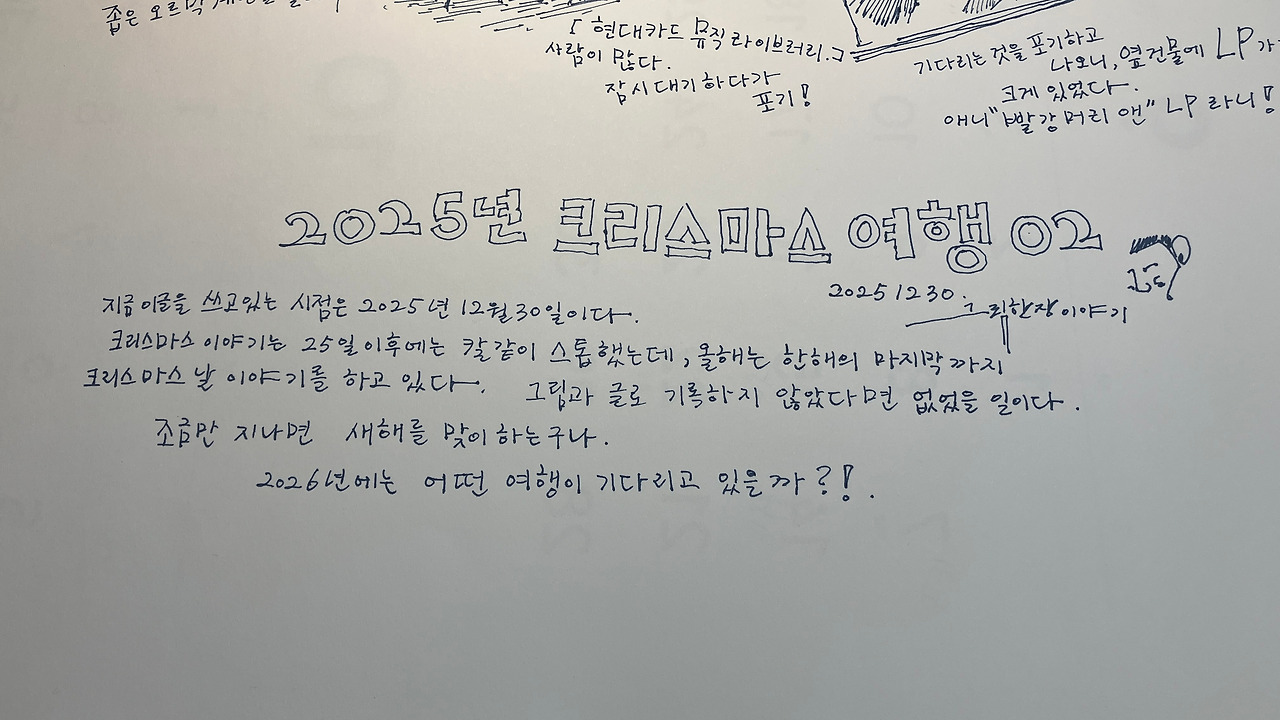 좁은 오르막
「현대카드 뮤직라이브러리.」
사람이 많다.
잠시 대기하다가
포기!
기다리는 것을 포기하고
나오니, 옆건물에 LP가
크게 있었다.
애니 "빨강머리 앤" LP 라니!
2025년 크리스마스 여행 02
20251230.
그림한장이야기
지금 이글을 쓰고있는 시점은 2025년 12월 30일이다.
크리스마스 이야기는 25일 이후에는 칼같이 스톱했는데, 올해는 한해의 마지막까지
크리스마스 날 이야기를 하고 있다. 그림과 글로 기록하지 않았다면 없었을 일이다.
조금만 지나면 새해를 맞이하는구나.
2026년에는 어떤 여행이 기다리고 있을까?!.